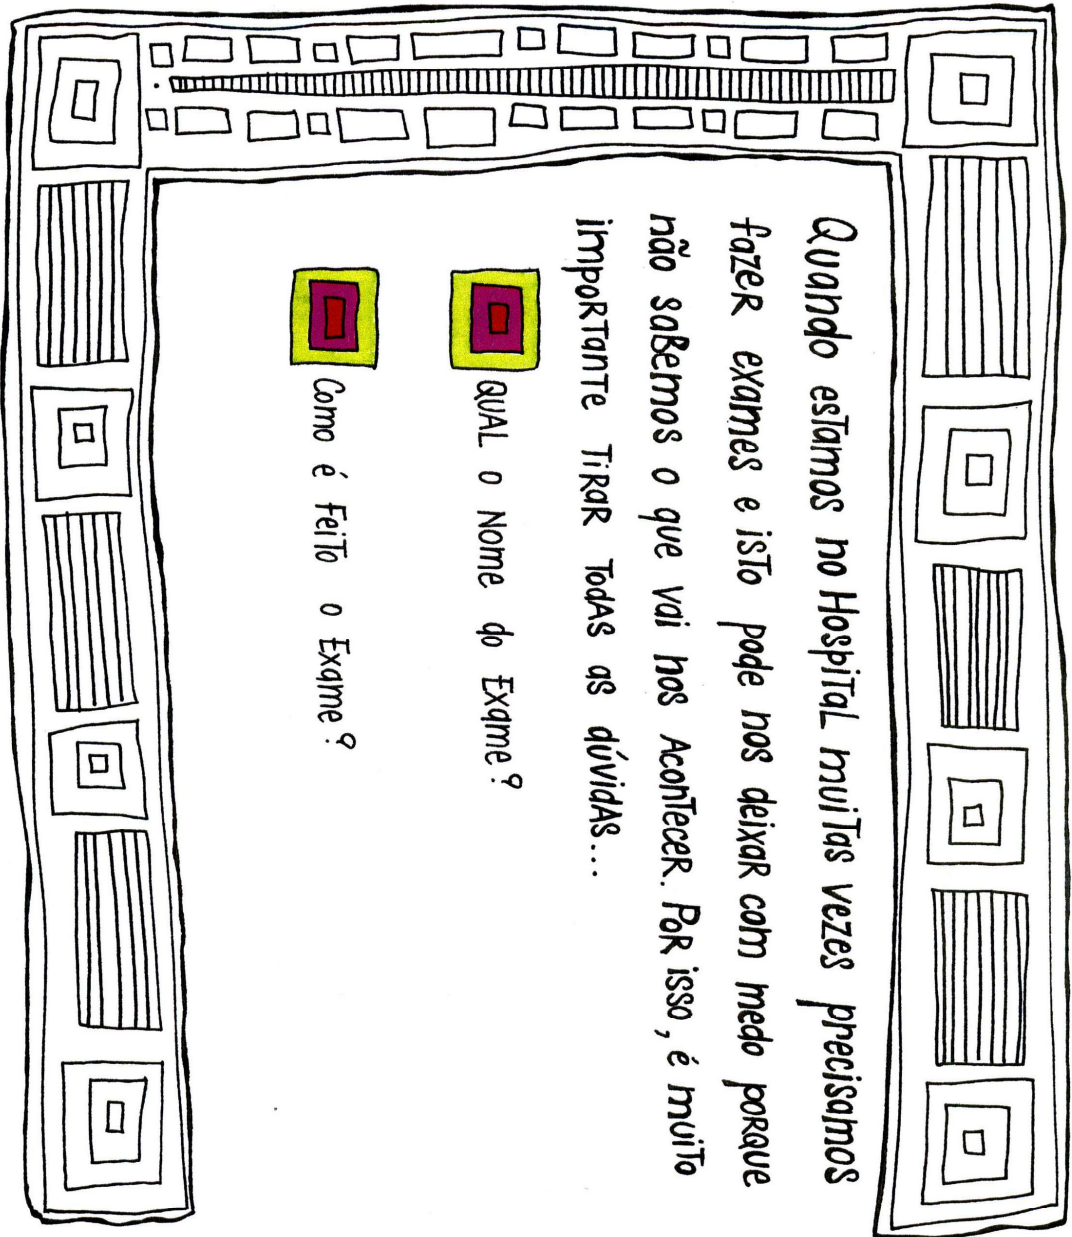 Quando estamos no Hospital muitas vezes precisamos
fazer exames e isto pode nos deixar com medo porque
não sabemos o que vai nos Acontecer. Por isso, é muito
importante Tirar Todas as dúvidas...
QUAL o Nome do Exame?
Como é Feito o Exame?